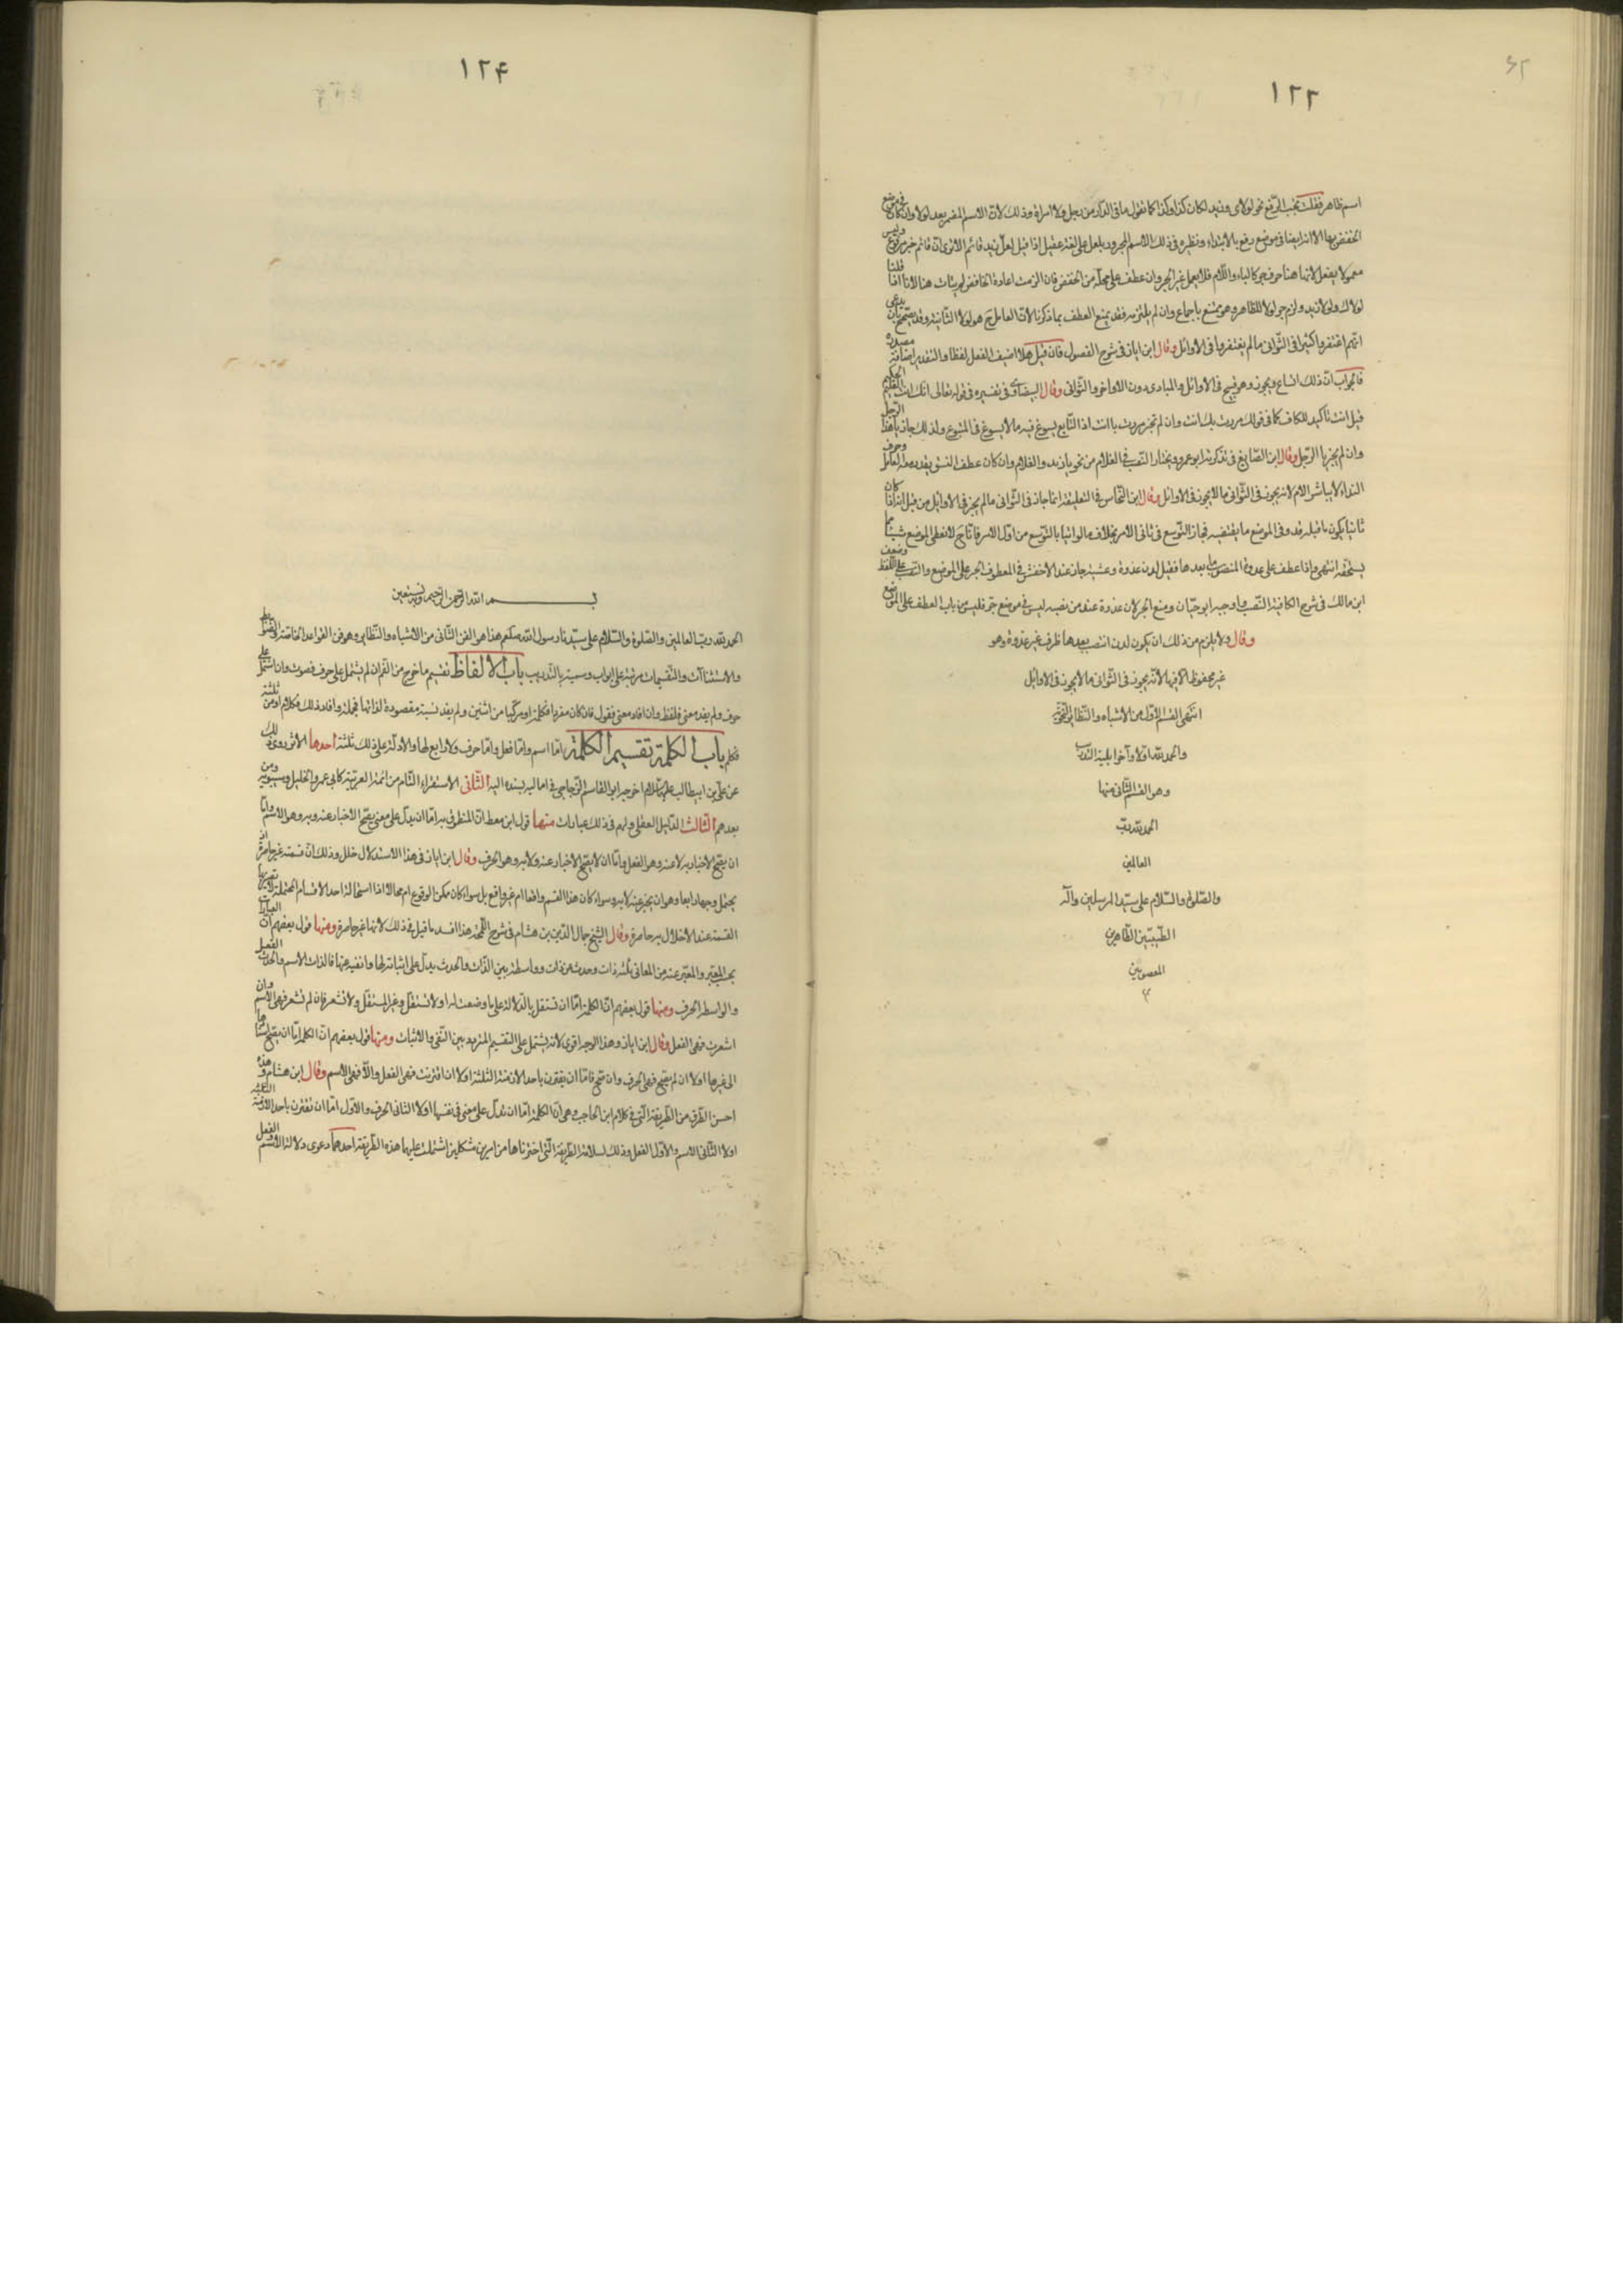 ١٢٣
اسم ظاهر فقلت يجب الرفع نحو لولاى وزيد لكان كذا وكذا كما تقول ما فى الدار من رجل ولا امراة وذلك لانّ الاسم المضمر بعد لولا وان كان فى موضع
الخفض بها الا انه ايضا فى موضع رفع بالابتداء ونظيره فى ذلك الاسم المجرور بلعل على لغة عقيل اذا قيل لعلّ زيد قائم الا ترى انّ قائم خبر مرفوع وليس
معمولا بفعل لانها هنا حرف جر كالباء واللّام فلا يعمل غير الجر وان عطف على محله من الخفض فان الزمت اعادة الخافض لم يتات هنا لانا اذا قلنا
لولاك ولولا زيد ولزم جر لولا للظاهر وهو ممتنع باجماع وان لم يلتزمه فقد يمتنع العطف بما ذكرنا لانّ العامل ح هو لولا الثانية وقد يصحّح بان يدعى
انّهم اغتفروا كثيرا فى الثّوانى ما لم يغتفروا فى الاوائل وقال ابن اياز فى شرح الفصول فان قيل هلا اضيف الفعل لفظا والتقدير اضافة مصدره
فالجواب انّ ذلك اتساع ويجوز وهو قبيح فى الاوائل والمبادى دون الاواخر والثّوانى وقال البيضاوى فى تفسيره فى قوله تعالى انك انت العليم الحكيم
قيل انت تأكيد للكاف كما فى قولك مررت بك انت وان لم تجز مررت بانت اذ التّابع يسوغ فيه ما لا يسوغ فى المتبوع ولذلك جاز يا هذا الرّجل
وان لم يجز يا الرّجل وقال ابن الصّايغ فى تذكرته ابو عمرو ويختار النّصب فى الغلام من نحو يا زيد والغلام وان كان عطف النسق يقدر معه العامل وحرف
النداء لا يباشر اللام لانه يجوز فى الثّوانى ما لا يجوز فى الاوائل وقال ابن النّحاس فى التعليقة انما جاز فى الثّوانى ما لم يجز فى الاوائل من قبل انه اذا كان
ثانيا يكون ما قبله قد وفى الموضع ما يقتضيه فجاز التّوسع فى ثانى الامر بخلاف ما لو اتينا بالتّوسع من اوّل الامر فانّا ح لا نعطى الموضع شيئا مما
يستحقه انتهى واذا عطف على غدوة المنصوب بعدها فقيل لدن غدوة وعشية جاز عند الاخفش فى المعطوف الجر على الموضع والنّصب على اللّفظ وضعف
ابن مالك فى شرح الكافية النّصب واوجبه ابو حيّان ومنع الجر لان غدوة عند من نصبه ليس فى موضع جرّ فليس من باب العطف على الموضع
وقال ولا يلزم من ذلك ان يكون لدن انتصب بعدها ظرف غير غدوة وهو
غير محفوظ الا فيها لانّه يجوز فى الثّوانى ما لا يجوز فى الاوائل
انتهى القسم الاوّل من الاشباه والنّظائر النّحويّة
والحمد لله اوّلا وآخرا يليه التّدريب
وهو القسم الثّانى منها
الحمد لله ربّ
العالمين
والصّلوة والسّلام على سيّد المرسلين وآله
الطّيبيّين الطّاهرين
المعصومين
١٢۴
بسم الله الرّحمن الرّحيم وبه نستعين
الحمد لله ربّ العالمين والصّلوة والسّلام على سيّدنا رسول الله صلعم هذا هو الفن الثّانى من الاشباه والنّظائر وهو فن القواعد الخاصّة والضّوابط
والاستثناآت والتّقسيمات مرتبة على ابواب وسميته بالتّدريب باب الالفاظ تقسيم ما خرج من الفم ان لم يشتمل على حرف فصوت وان اشتمل على
حرف ولم يفد معنى فلفظ وان افاد معنى فقول فان كان مفردا فكلمة او مركّبا من اثنين ولم يفد نسبة مقصودة لذاتها فجملة او افاد ذلك فكلام او من ثلثة
فكلم باب الكلمة تقسيم الكلمة امّا اسم وامّا فعل وامّا حرف ولا رابع لها والادلّة على ذلك ثلثة احدها الاثر روى ذلك
عن علىّ بن ابيطالب عليه السّلام اخرجه ابو القاسم الزّجاجى فى اماليه بسنده اليه الثّانى الاستقراء التّام من ائمّة العربيّة كابى عمرو والخليل وسيبويه ومن
بعدهم الثّالث الدّليل العقلى ولهم فى ذلك عبارات منها قول ابن معط انّ المنطوق به امّا ان يدلّ على معنى يصحّ الاخبار عنه وبه وهو الاسم وامّا
ان يصحّ الاخبار به لا عنه وهو الفعل وامّا ان لا يصحّ الاخبار عنه ولا به وهو الحرف وقال ابن اياز فى هذا الاستدلال خلل وذلك انّ قسمته غير حاصرة اذ
يحتمل وجها رابعا وهو ان يخبر عنه لا به وسواء كان هذا القسم واقعا ام غير واقع بل سواء كان ممكن الوقوع ام محالا اذا استحالة احد الاقسام المحتملة لا تصير بها
القسمة عند الاخلال به حاصرة وقال الشّيخ جمال الدّين بن هشام فى شرح اللّمحة هذا افسد ما قيل فى ذلك لانها غير حاصرة ومنها قول بعضهم انّ العبارات
بحسب المعبّر والمعبّر عنه من المعانى ثلثة ذات وحدث عن ذات وواسطة بين الذّات والحدث يدلّ على اثباته لها او نفيه عنها فالذات الاسم والحدث الفعل
والواسطة الحرف ومنها قول بعضهم انّ الكلمة امّا ان تستقل بالدّلالة على ما وضعت له او لا تستقلّ وغير المستقلّ ولا تشعر فان لم تشعر فهى الاسم وان
اشعرت فهى الفعل وقال ابن اياز وهذا الوجه اقوى لانه يشتمل على التقسيم المتردد بين النّفى والاثبات ومنها قول بعضهم انّ الكلمة امّا ان يصحّ اسنادها
الى غيرها او لا ان لم يصحّ فهى الحرف وان صحّ فامّا ان يقترن باحد الازمنة الثلثة او لا ان اقترنت فهى الفعل والّا فهى الاسم وقال ابن هشام وهذه
احسن الطّرق من الطّريقة الّتى فى كلام ابن الحاجب وهى انّ الكلمة امّا ان تدلّ على معنى فى نفسها او لا الثّانى الحرف والاوّل امّا ان تقترن باحد الازمنة الثلثة
او لا الثّانى الاسم والاوّل الفعل وذلك لسلامة الطّريقة الّتى اخترناها من امرين مشكلين اشتملت عليهما هذه الطّريقة احدهما دعوى دلالة الاسم والفعل